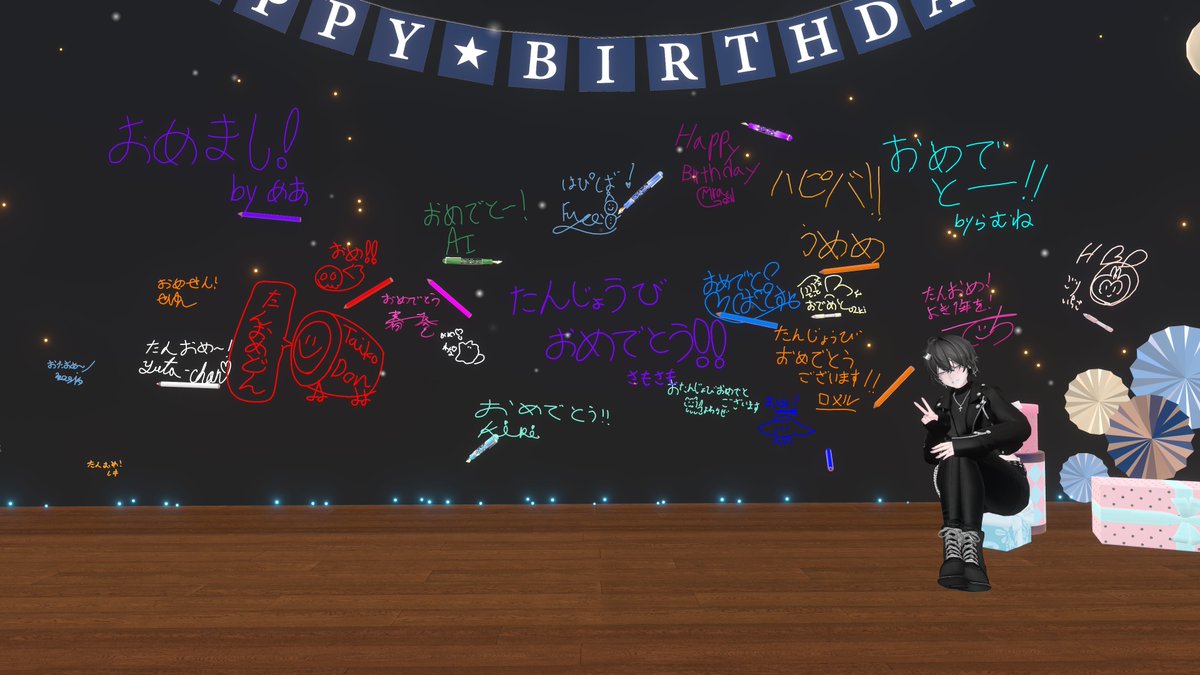 PPY★BIRTHDA
おめまし!
by めあ
おめでとー!
AI
はぴば!
Happy
Birthday
ハピバ!!
うめめ
おめで
とー!!
byらむね
おめ!!
おめせん!
たんおめどん
Taiko
Don
おめでとう
春巻
たんじょうび
おめでとう!!
さもさも
おめでとう
おめでとう
たんじょうび
おめでとう
ございます!!
ロメル
たんおめ!
よき1年を!
HBD
たんおめ〜!
Yuta-chan♡
おたんじょうびおめでと
ございます
おめでとう!!
Kiki
たんおめ!